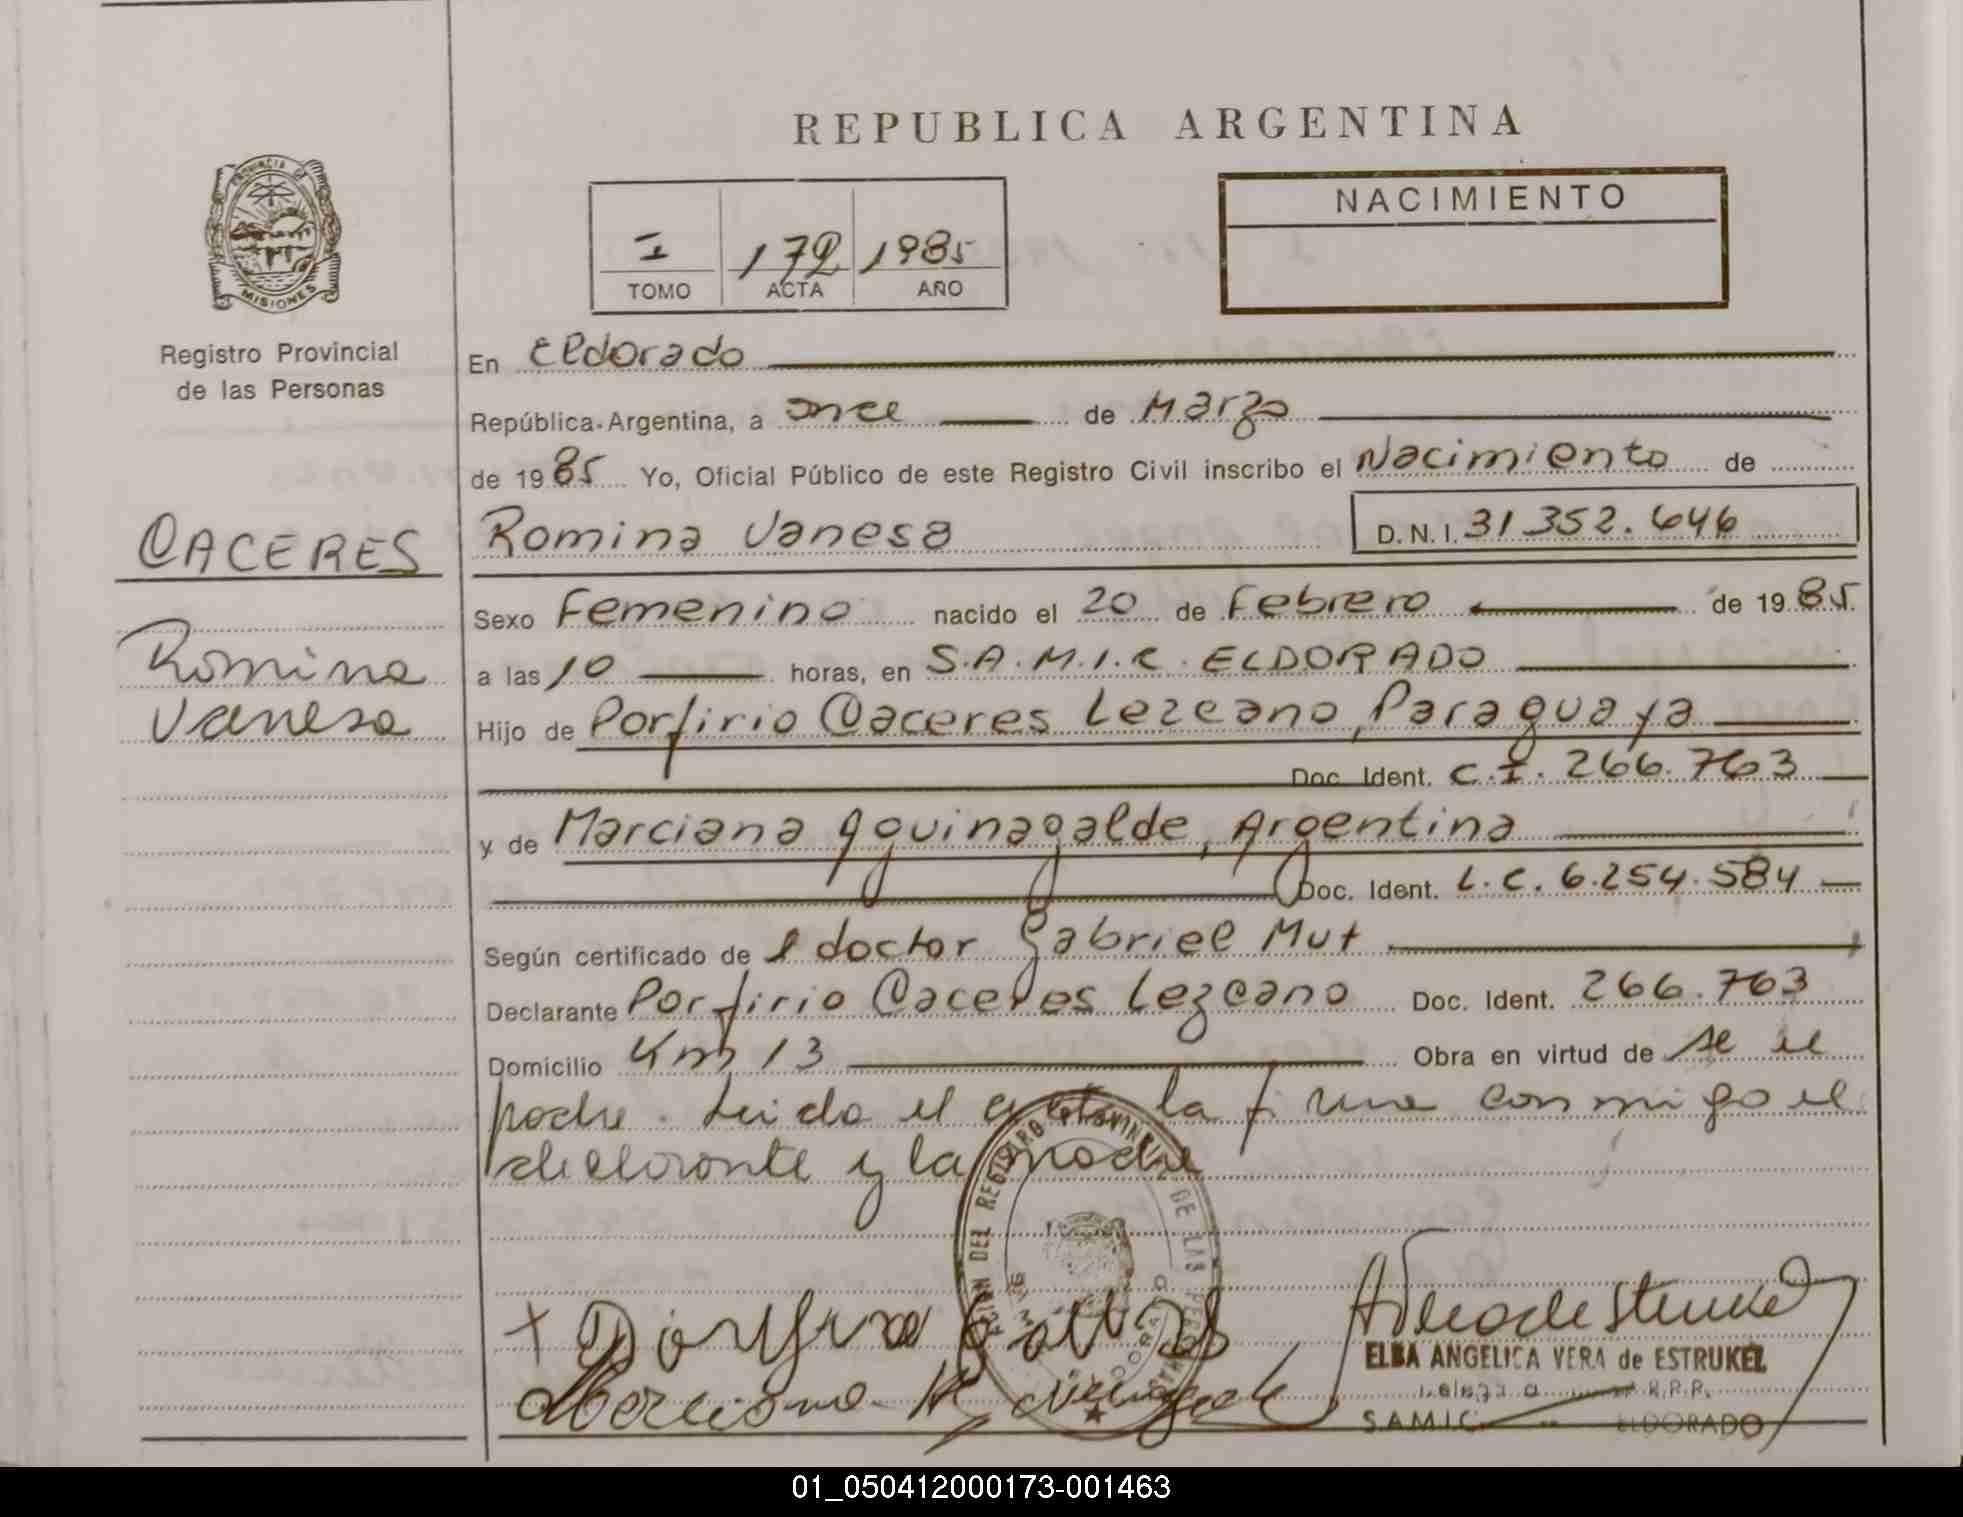 REPUBLICA ARGENTINA
PROVINCIA DE
MISIONES
Registro Provincial
de las Personas
I 172 1985
TOMO ACTA AÑO
NACIMIENTO
En Eldorado
República Argentina, a once de Marzo
de 1985 Yo, Oficial Público de este Registro Civil inscribo el Nacimiento de
CACERES
Romina Vanesa
Romina Vanesa D.N.I. 31352.646
Sexo Femenino nacido el 20 de Febrero de 1985
a las 10 horas, en S.A.M.I.C. ELDORADO
Hijo de Porfirio Caceres Lezcano, Paraguaya
Doc. Ident. C.I. 266.763
y de Marciana Aguinagalde, Argentina
Doc. Ident. L.C. 6.254.584
Según certificado de l doctor Gabriel Mut
Declarante Porfirio Caceres Lezcano Doc. Ident. 266.763
Domicilio Km 13 Obra en virtud de se el
padre. Leido el acta la firma conmigo el
declarante y la madre
DEL REGISTRO PROVINCIAL DE LAS PERSONAS
ELDORADO
ELBA ANGELICA VERA de ESTRUKEL
R.P.P.
S.A.M.I.C. ELDORADO
01_050412000173-001463